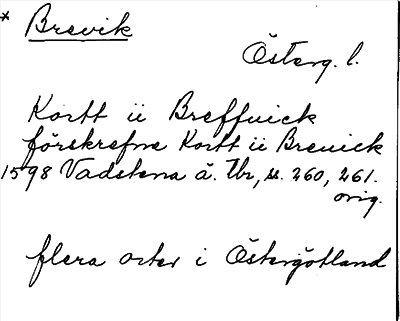 * Brevik
Österg. l.
Kortt ü Breffuick
förskrefne Kortt ü Breuick
1598 Vadstena ä. Tbr, s. 260, 261.
orig.
flera orter i Östergötland